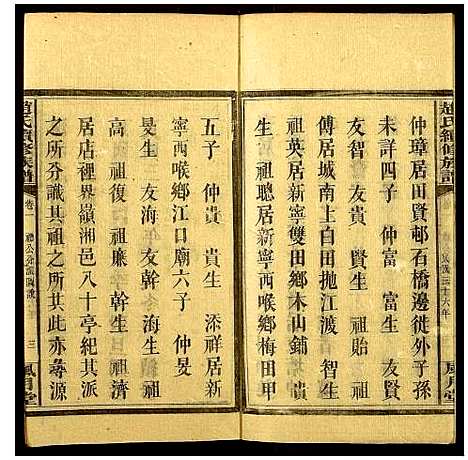 趙氏續修族譜
民國三十六年
風月堂
仲璋居田賢邨石橋邊徙外子孫
未詳四子 仲富 富生
友貴 友賢 賢生 祖貽
傅居城南上白田拋江渡 智生
祖英居新寧雙田鄉木山鋪 貴
生 祖聰居新寧西喉鄉梅田甲
五子 仲貴 貴生 添祥居新
寧西喉鄉江口廟六子 仲旻
旻生 友海 友幹 海生
高 祖復 祖廉 幹生 祖濟
居店裡界嶺湘邑八十亭紀其派
之所分識其祖之所其此亦尋源
趙氏續修族譜
卷一
三
風月堂